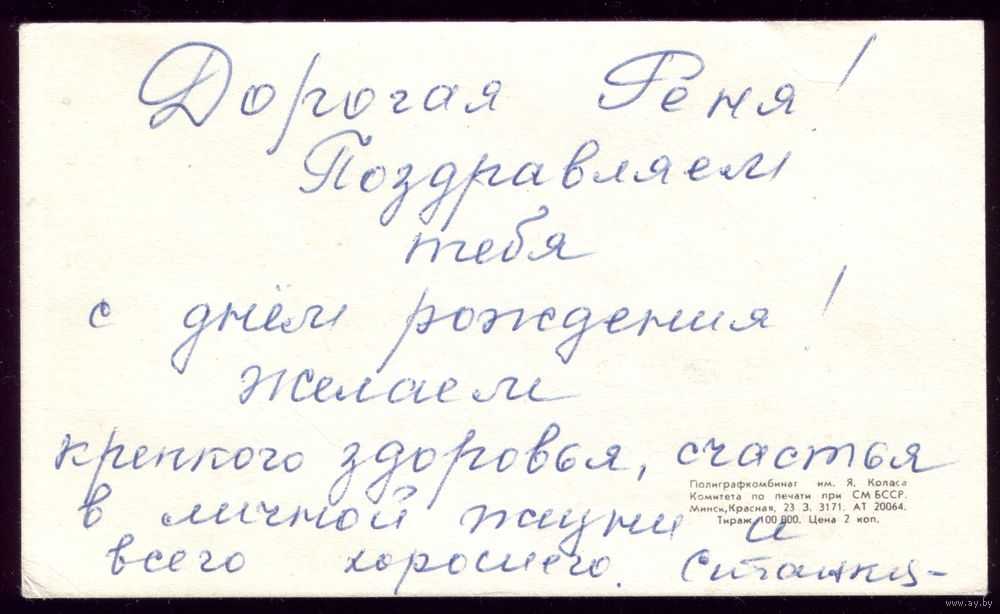 Дорогая Геня!
Поздравляем
тебя
с днём рождения!
желаем
крепкого здоровья, счастья
Полиграфкомбинат им. Я. Коласа
Комитета по печати при СМ БССР.
Минск, Красная, 23 З. 3171. АТ 20064.
Тираж 100 000. Цена 2 коп.
в личной жизни и
всего хорошего.
www.ay.by